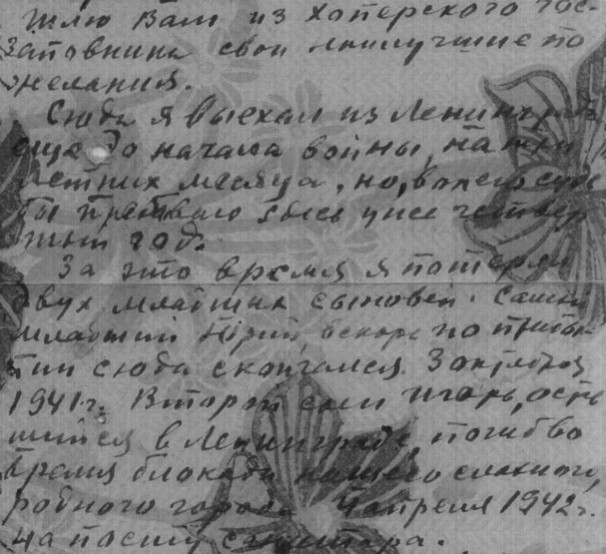 шлю Вам из Хоперского гос-
заповника свои наилучшие по
желания.
Сюда я выехал из Ленинграда
еще до начала войны, на три
летних месяца, но, волею судь
бы пребываю здесь уже четвер
тый год.
За это время я потерял
двух младших сыновей. Самый
младший Юрий, вскоре по прибы
тии сюда скончался 3 октября
1941 г. Второй сын Игорь, остав
шийся в Ленинграде, погиб во
время блокады нашего славного,
родного города 4 апреля 1942 г.
на посту санитара.